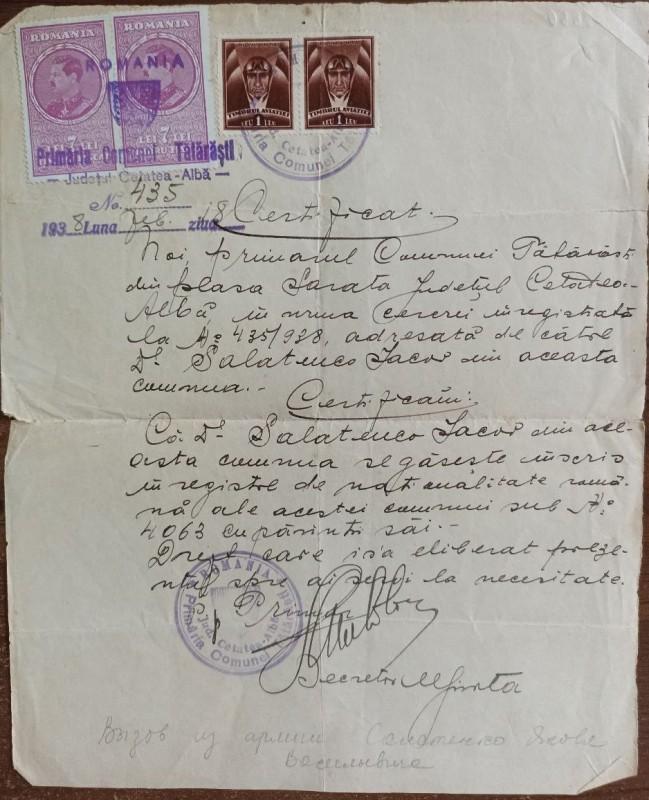 ROMANIA ROMANIA
7 LEI 7 LEI
TIMBRUL AVIATIEI TIMBRUL AVIATIEI
LEU 1 LEU LEU 1 LEU
ROMANIA
Primăria Comunei Tătărăști
— Județul Cetatea-Albă —
No. 435
1938 Luna Feb. ziua 18
Certificat.
Noi, primarul Comunei Tătărăști
din plasa Sarata Județul Cetatea-
Albă, in urma cererei inregistrată
la No 435/938, adresată de către
Dl Salatenco Iacov din aceasta
comuna.-
Certificăm:
Că Dl Salatenco Iacov din ace-
asta comuna se găsește inscris
in registrul de naționalitate româ-
nă ale acestei comuni sub No
4063 cu părinti săi.-
Drept care is'a eliberat preze-
ntul spre a-i servi la necesitate.
p. Primar
ROMANIA
Primăria Comunei
Jud. Cetatea-Albă
Secretar
Вызов из армии Салатенко Якова
Васильевича